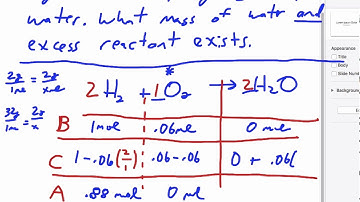 water. What mass of water and
excess reactant exists.
2g/1mol = 2g/x mol
*
2H₂ + 1O₂ → 2H₂O
32g/1mol = 2g/x
B 1mol .06mol 0 mol
C 1-.06(2/1) .06-.06 0 + .06(
A .88 mol 0 mol
Appearance
Title
Body
Slide Number
Background